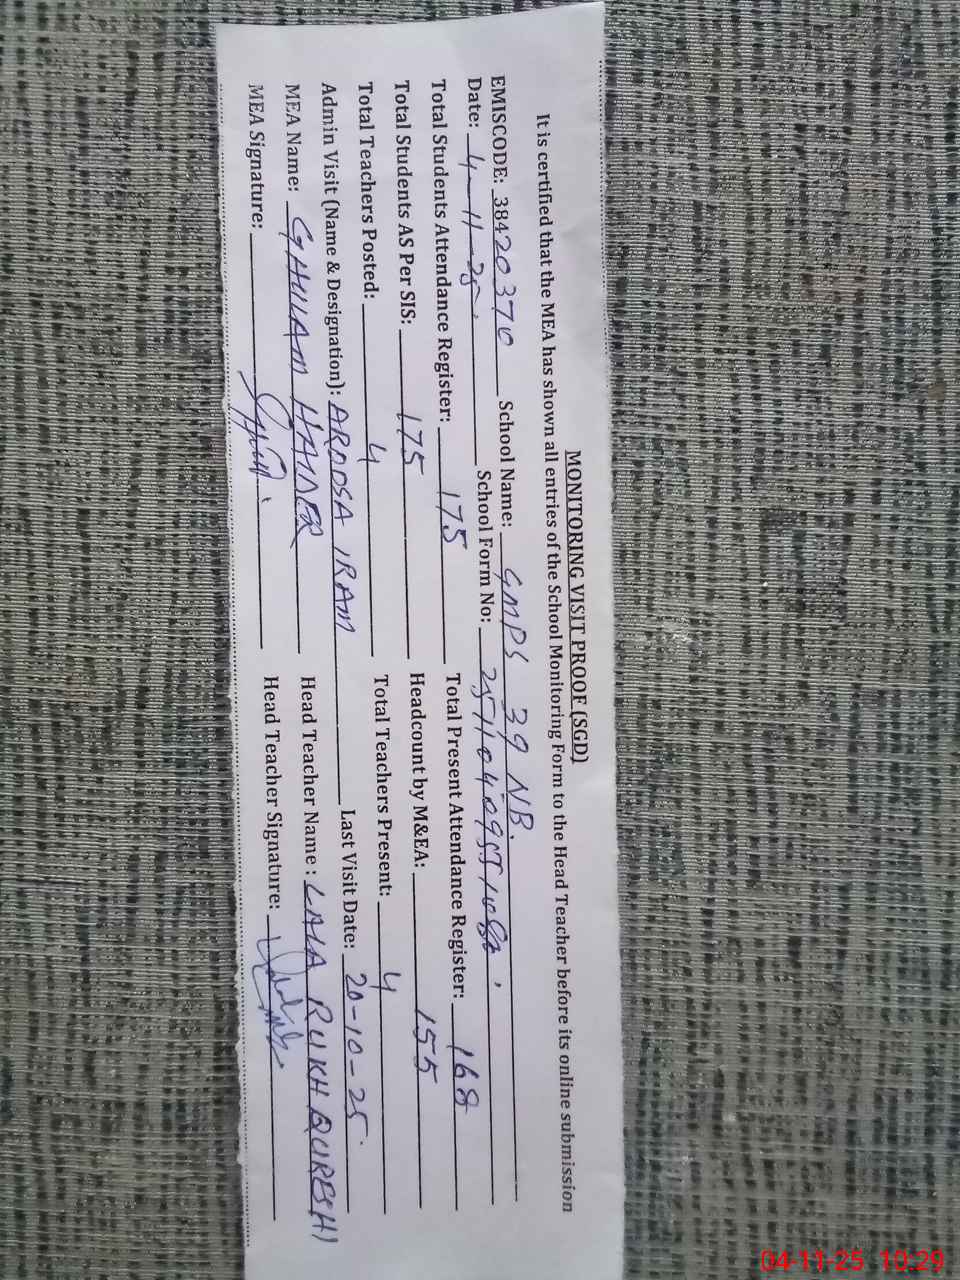 MONITORING VISIT PROOF (SGD)
It is certified that the MEA has shown all entries of the School Monitoring Form to the Head Teacher before its online submission
EMISCODE: 38420370 School Name: GMPS 39 NB.
Date: 4-11-25. School Form No:
Total Students Attendance Register: 175 Total Present Attendance Register: 168
Total Students AS Per SIS: 175 Headcount by M&EA: 155
Total Teachers Posted: 4 Total Teachers Present: 4
Admin Visit (Name & Designation): AROOSA IRAM Last Visit Date: 20-10-25.
MEA Name: GHULAM HAIDER Head Teacher Name : LALA RUKH QURESHI
MEA Signature: Head Teacher Signature:
04-11-25 10:29